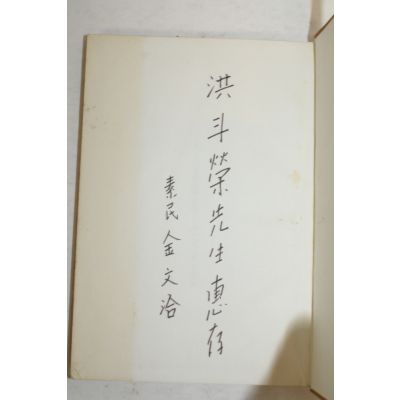 洪斗榮先生惠存
素民金文治